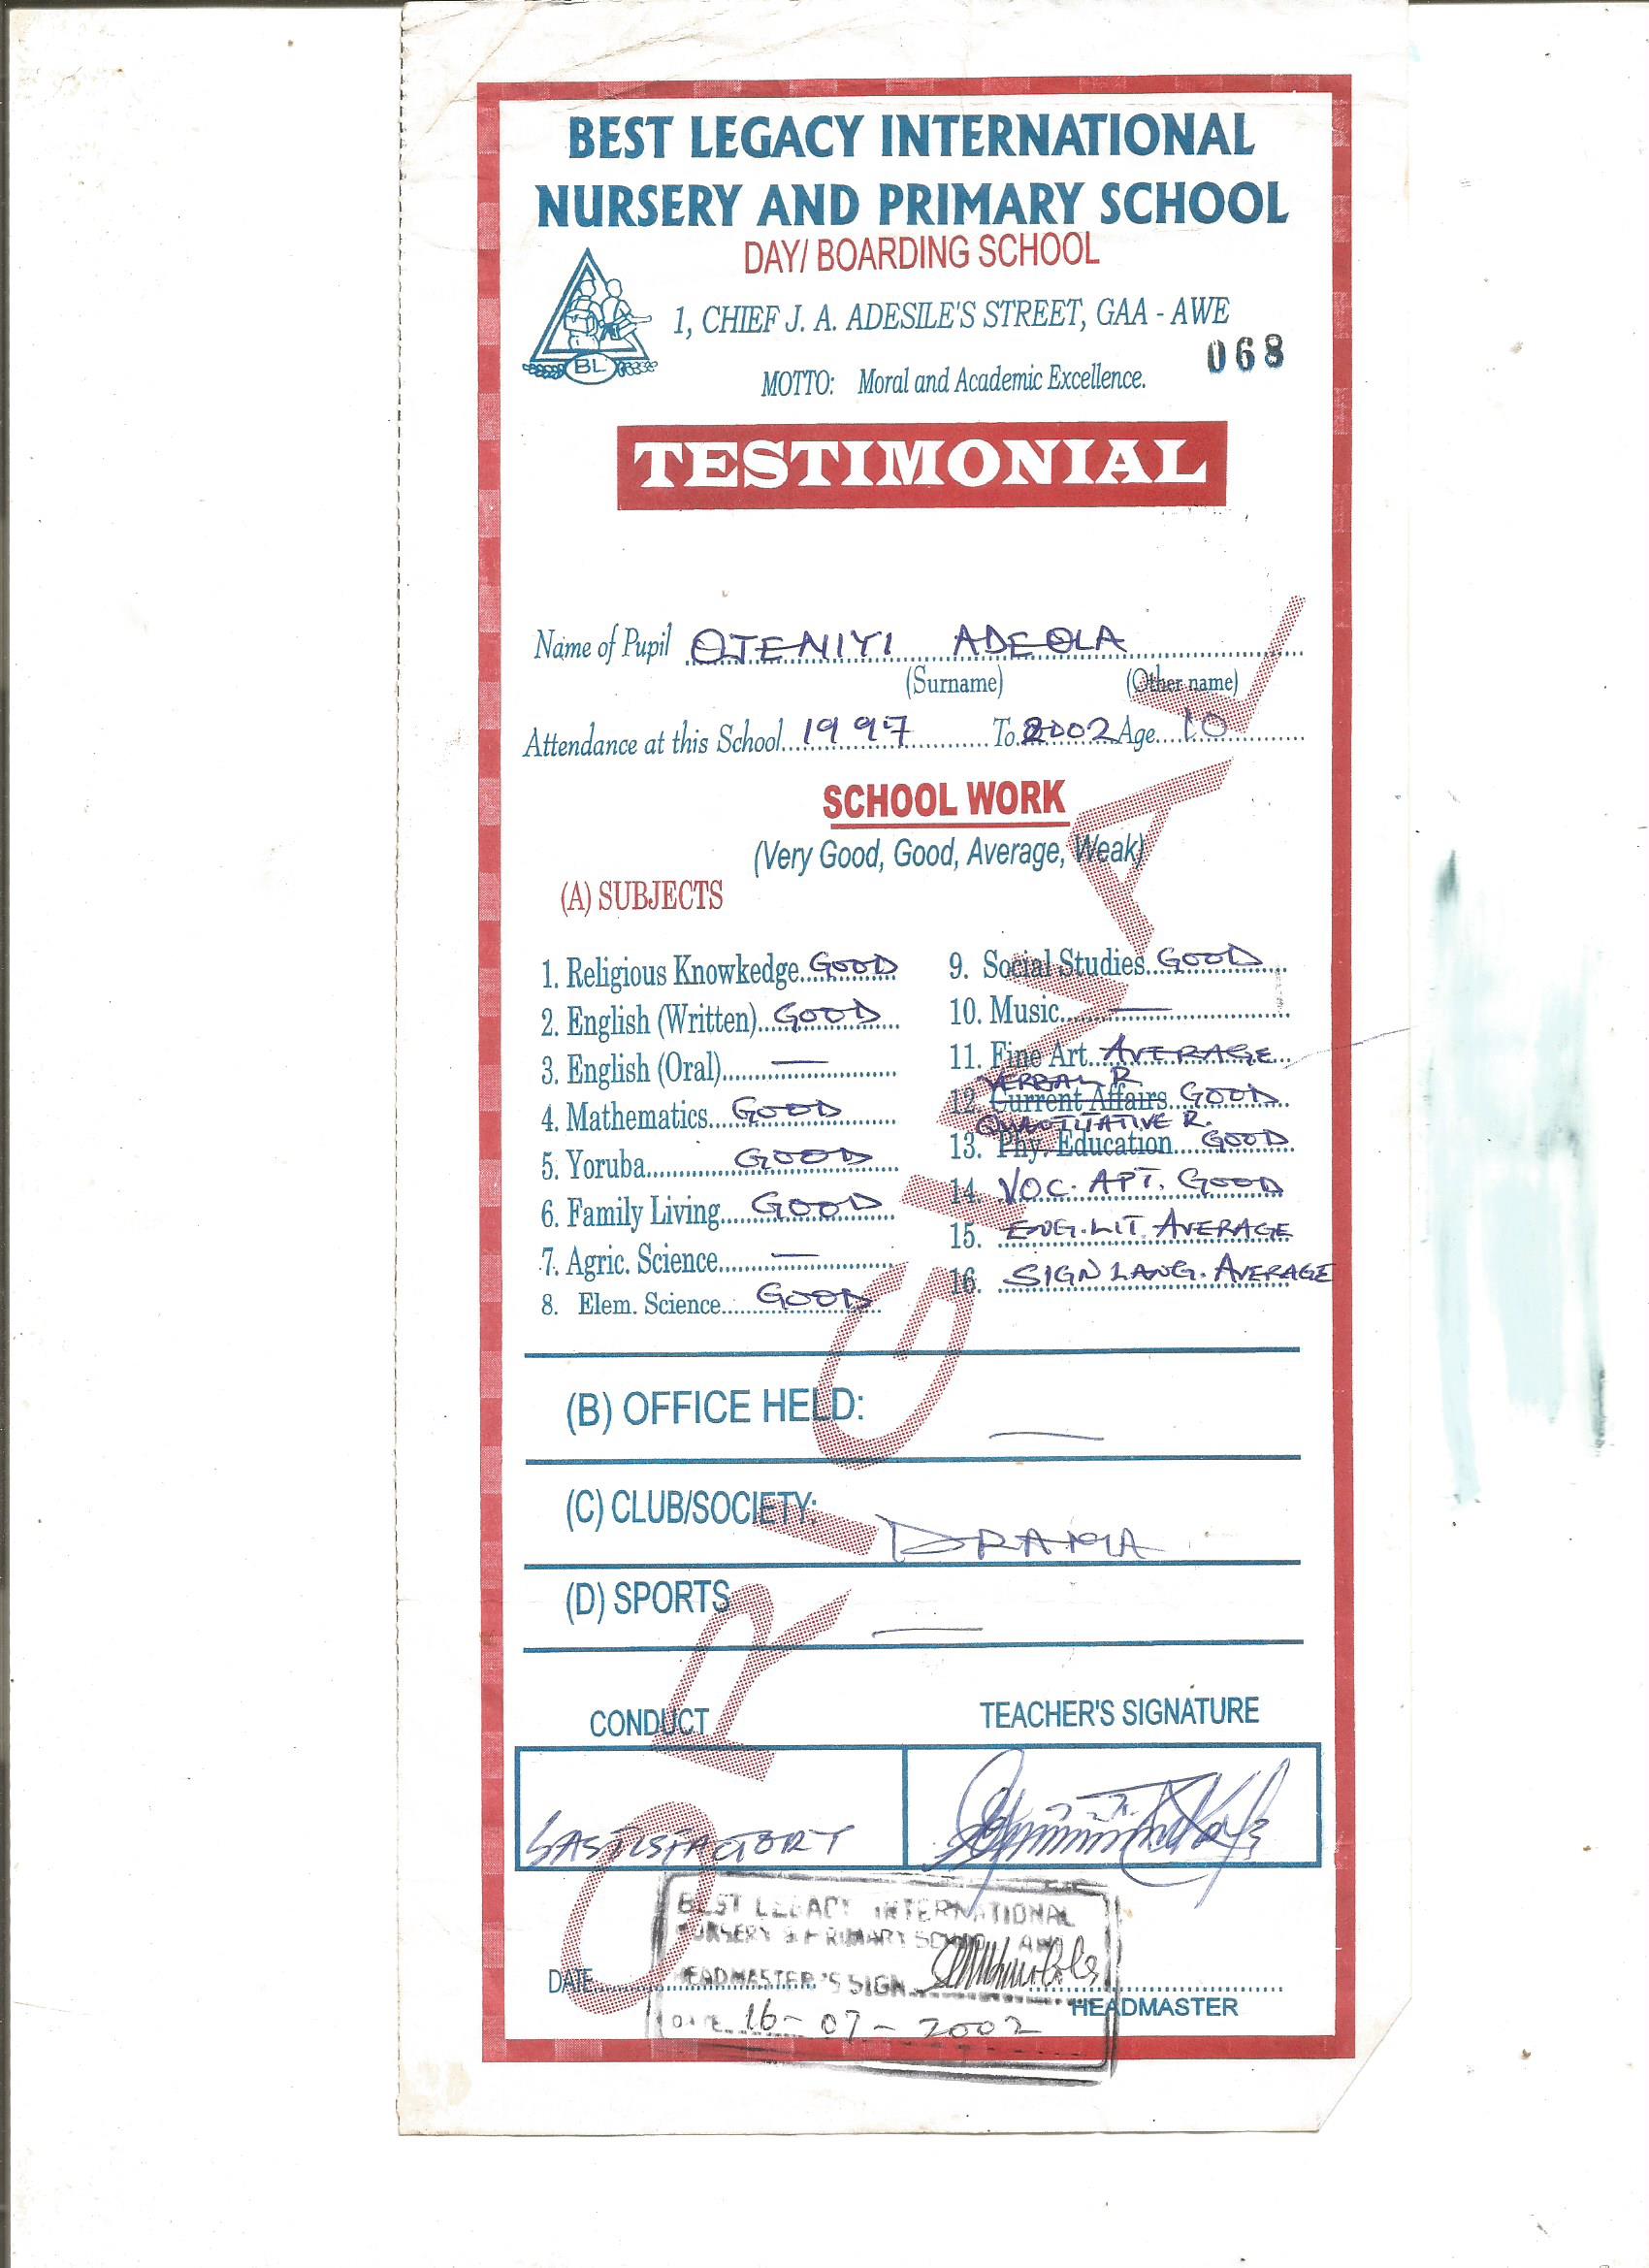 BEST LEGACY INTERNATIONAL
NURSERY AND PRIMARY SCHOOL
DAY/ BOARDING SCHOOL
1, CHIEF J. A. ADESILE'S STREET, GAA - AWE
068
MOTTO: Moral and Academic Excellence.
BL
TESTIMONIAL
ORIGINAL
Name of Pupil OJENIYI ADEOLA
(Surname) (Other name)
Attendance at this School 1997 To 2002 Age 10
SCHOOL WORK
(Very Good, Good, Average, Weak)
(A) SUBJECTS
1. Religious Knowkedge GOOD
2. English (Written) GOOD
3. English (Oral) —
4. Mathematics GOOD
5. Yoruba GOOD
6. Family Living GOOD
7. Agric. Science —
8. Elem. Science GOOD
9. Social Studies GOOD
10. Music —
11. Fine Art AVERAGE
VERBAL R
12. Current Affairs GOOD
QUANTITATIVE R.
13. Phy. Education GOOD
14. VOC. APT. GOOD
15. ENG. LIT. AVERAGE
16. SIGN LANG. AVERAGE
(B) OFFICE HELD: —
(C) CLUB/SOCIETY: DRAMA
(D) SPORTS —
CONDUCT TEACHER'S SIGNATURE
SASTISFACTORY
BEST LEGACY INTERNATIONAL
NURSERY & PRIMARY SCHOOL AWE
DATE HEADMASTER'S SIGN
HEADMASTER
DATE 16-07-2002